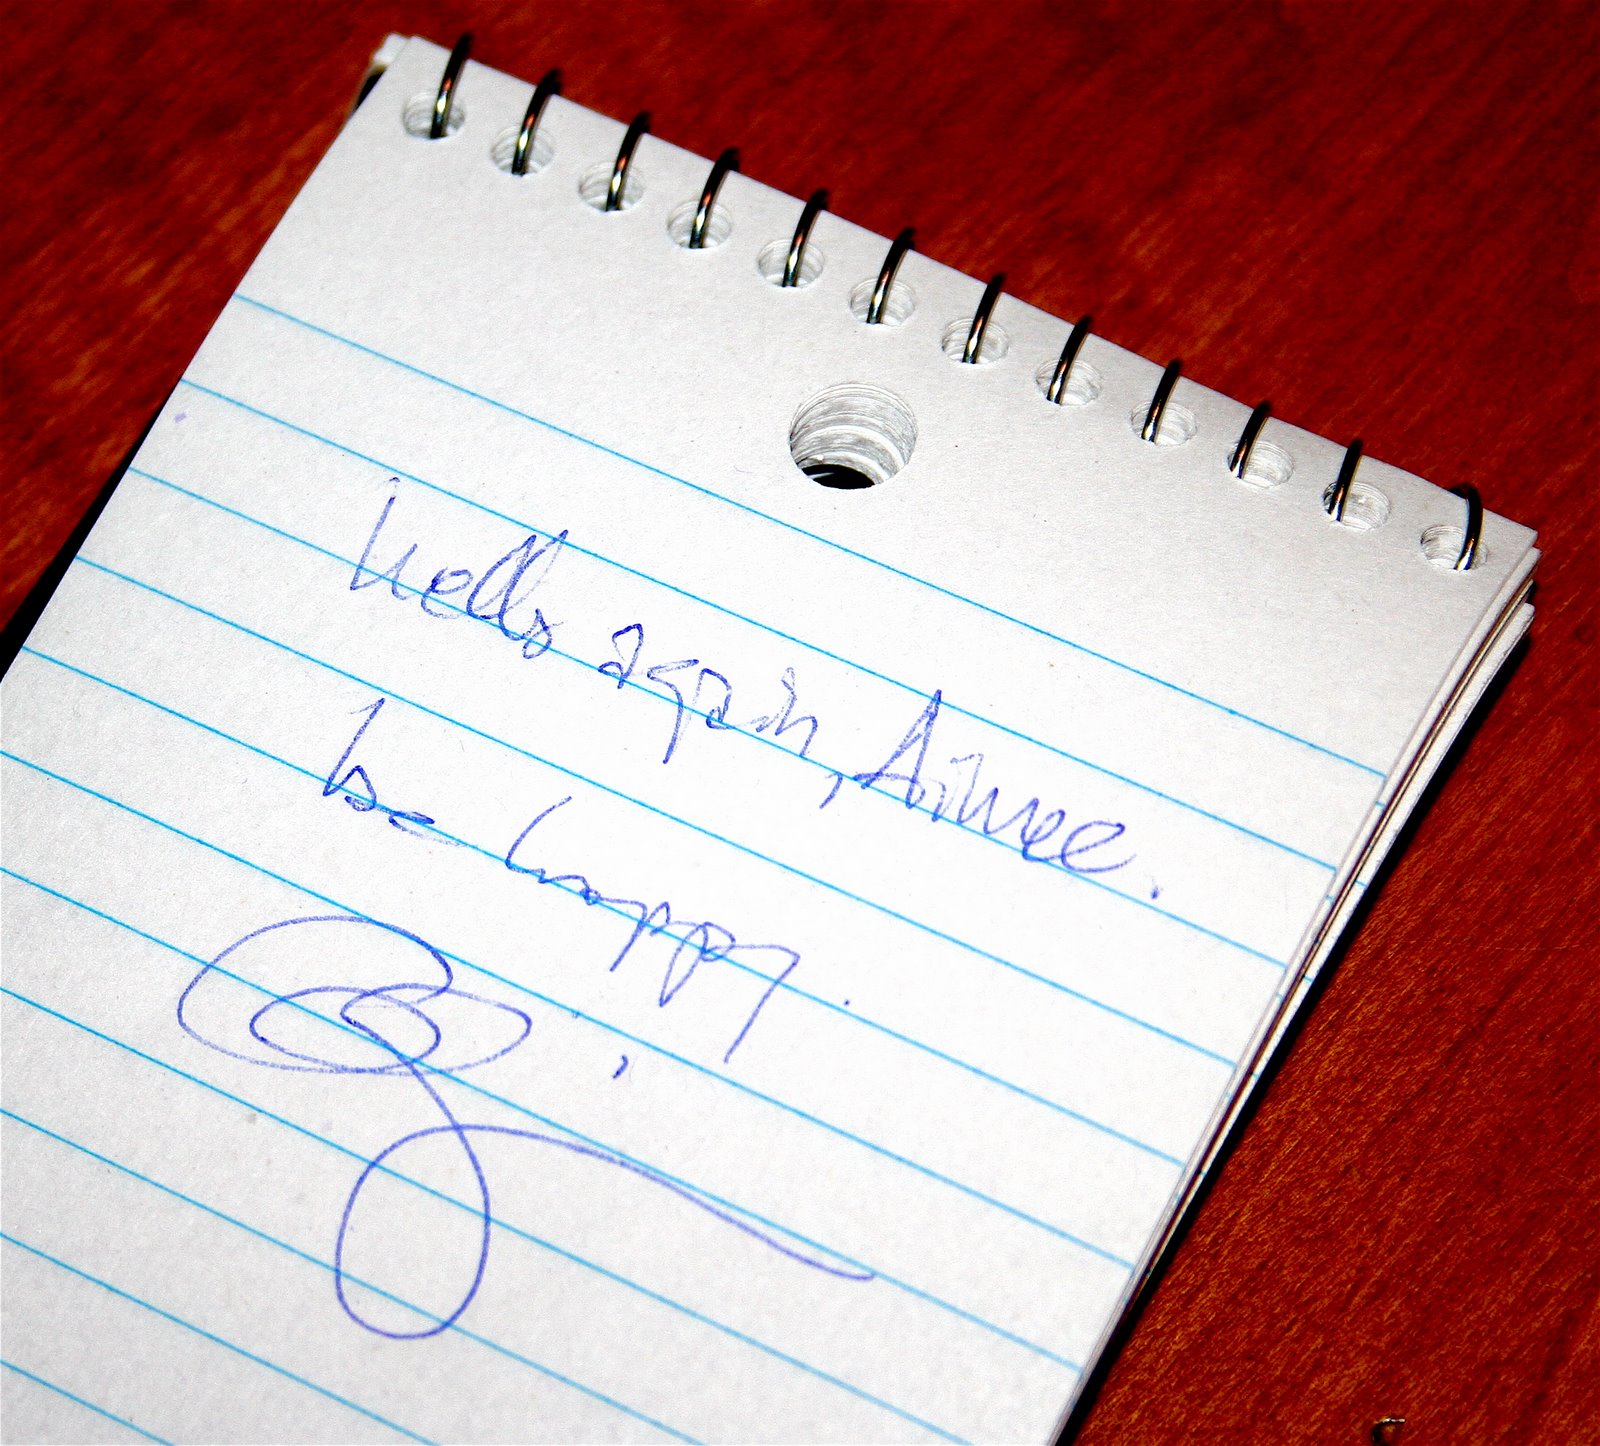 hello again, Aimee.
be happy.